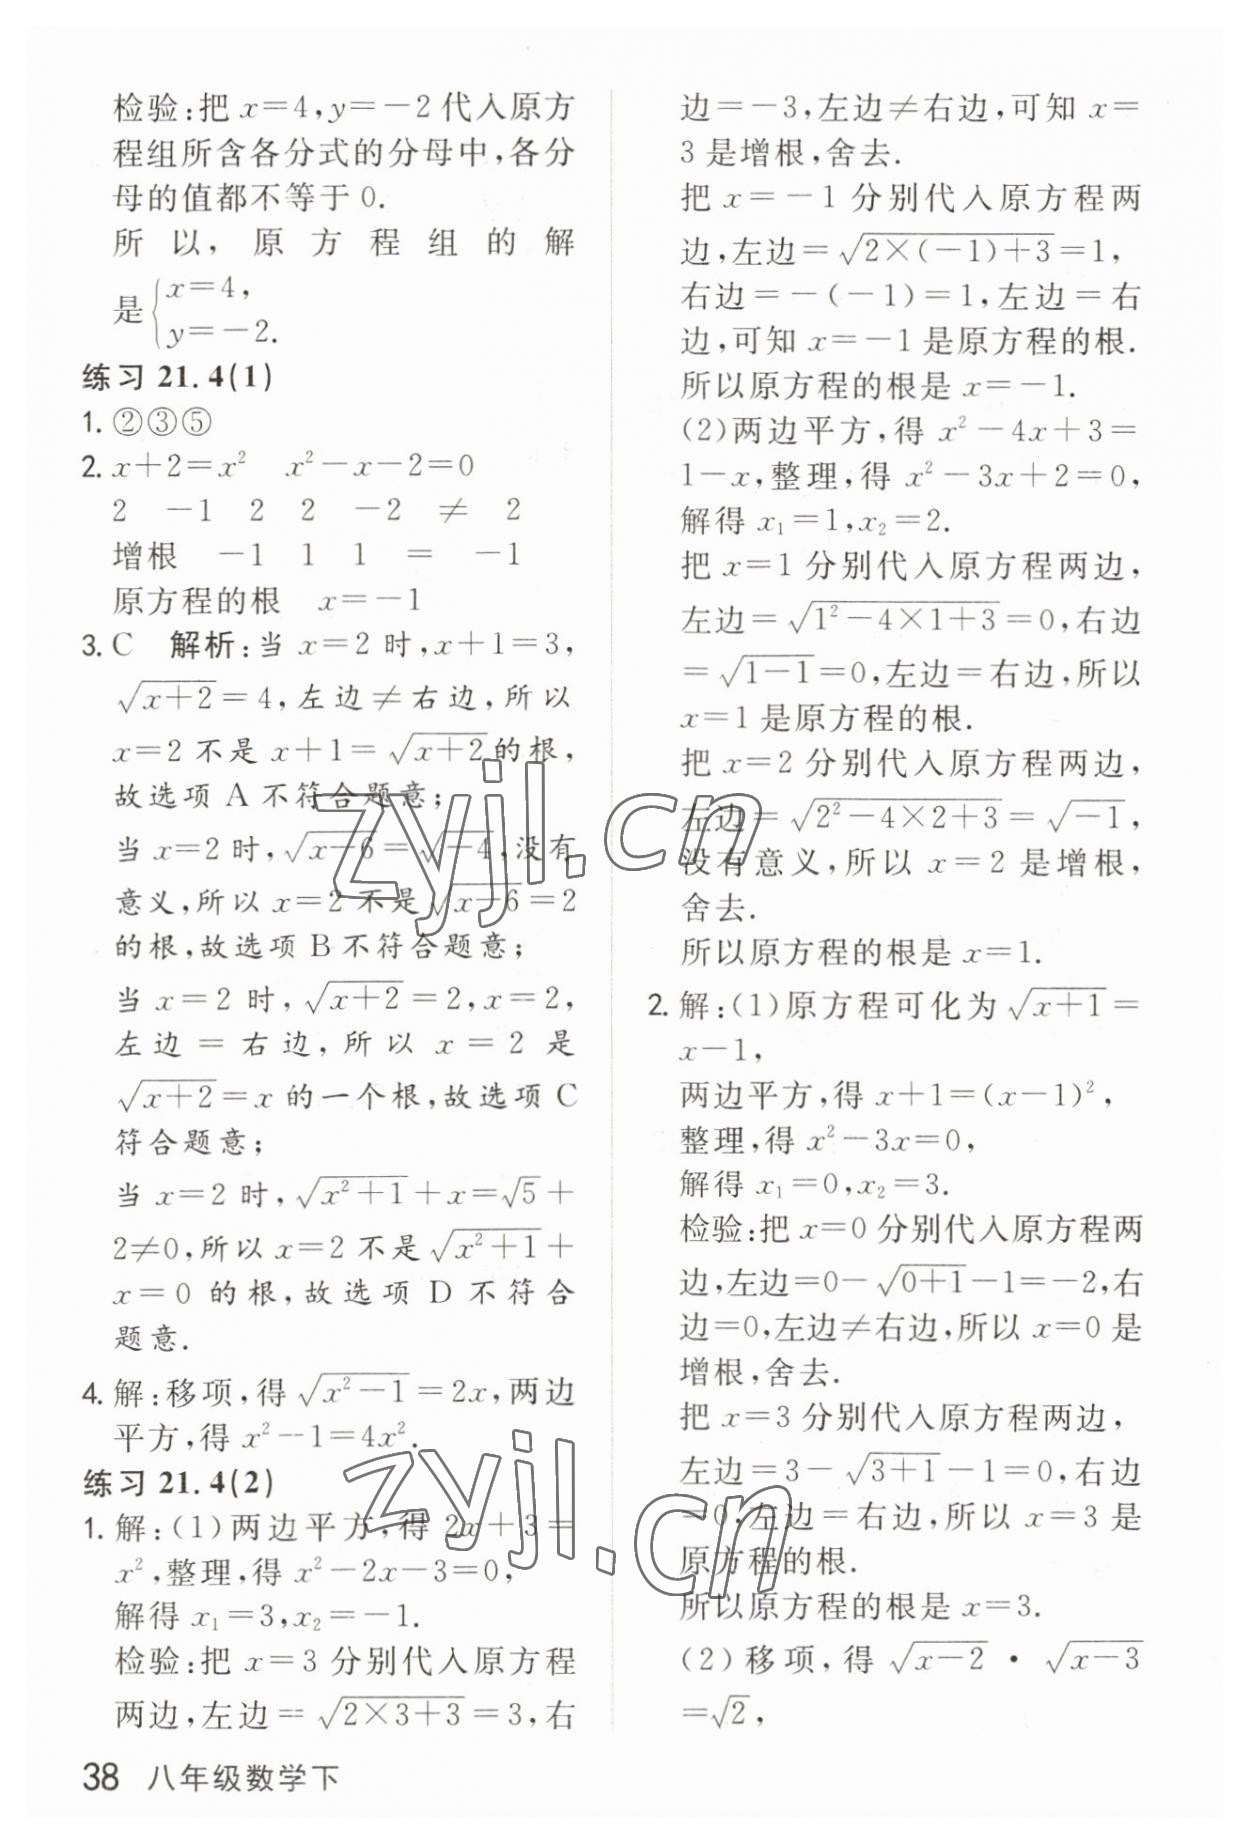 检验:把 x=4,y=-2代入原方
程组所含各分式的分母中,各分
母的值都不等于0.
所以,原方程组的解
是{x=4,
y=-2.
练习 21.4(1)
1. ②③⑤
2. x+2=x² x²-x-2=0
2 -1 2 2 -2 ≠ 2
增根 -1 1 1 = -1
原方程的根 x=-1
3. C 解析:当 x=2 时,x+1=3,
√(x+2)=4,左边≠右边,所以
x=2 不是 x+1=√(x+2)的根,
故选项 A 不符合题意;
当 x=2 时,√(x-6)=√(-4),没有
意义,所以 x=2 不是√(x-6)=2
的根,故选项 B 不符合题意;
当 x=2 时,√(x+2)=2,x=2,
左边=右边,所以 x=2 是
√(x+2)=x 的一个根,故选项 C
符合题意;
当 x=2 时,√(x²+1)+x=√5+
2≠0,所以 x=2 不是√(x²+1)+
x=0 的根,故选项 D 不符合
题意.
4. 解:移项,得 √(x²-1)=2x,两边
平方,得 x²-1=4x².
练习 21.4(2)
1. 解:(1)两边平方,得 2x+3=
x²,整理,得 x²-2x-3=0,
解得 x₁=3,x₂=-1.
检验:把 x=3 分别代入原方程
两边,左边=√(2×3+3)=3,右
边=-3,左边≠右边,可知 x=
3 是增根,舍去.
把 x=-1 分别代入原方程两
边,左边=√(2×(-1)+3)=1,
右边=-(-1)=1,左边=右
边,可知 x=-1 是原方程的根.
所以原方程的根是 x=-1.
(2)两边平方,得 x²-4x+3=
1-x,整理,得 x²-3x+2=0,
解得 x₁=1,x₂=2.
把 x=1 分别代入原方程两边,
左边=√(1²-4×1+3)=0,右边
=√(1-1)=0,左边=右边,所以
x=1 是原方程的根.
把 x=2 分别代入原方程两边,
左边=√(2²-4×2+3)=√(-1),
没有意义,所以 x=2 是增根,
舍去.
所以原方程的根是 x=1.
2. 解:(1)原方程可化为 √(x+1)=
x-1,
两边平方,得 x+1=(x-1)²,
整理,得 x²-3x=0,
解得 x₁=0,x₂=3.
检验:把 x=0 分别代入原方程两
边,左边=0-√(0+1)-1=-2,右
边=0,左边≠右边,所以 x=0 是
增根,舍去.
把 x=3 分别代入原方程两边,
左边=3-√(3+1)-1=0,右边
=0,左边=右边,所以 x=3 是
原方程的根.
所以原方程的根是 x=3.
(2)移项,得 √(x-2)·√(x-3)
=√2,
38 八年级数学下
zyjl.cn
zyjl.cn